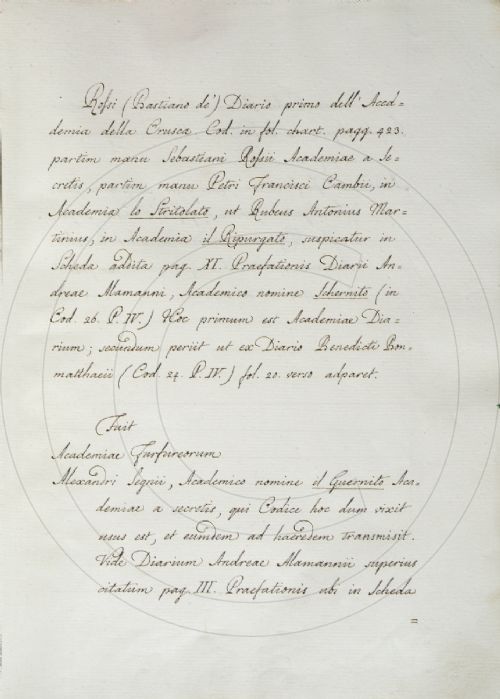 Rossi (Bastiano de') Diario primo dell'Acca=
demia della Crusca Cod. in fol. chart. pagg. 423.
partim manu Sebastiani Rossii Academiae a Se=
cretis, partim manu Petri Francisci Cambii, in
Academia lo Stritolato, ut Rubeus Antonius Mar=
tinius, in Academia il Ripurgato, suspicatur in
Scheda addita pag. XI. Praefationis Diarii An=
dreae Alamanni, Academico nomine Schernito (in
Cod. 26. P. IV.) Hoc primum est Academiae Dia=
rium; secundum periit ut ex Diario Benedicti Bon=
matthaeii (Cod. 24. P. IV.) fol. 20. verso adparet.
Fuit
Academiae Furfureorum
Alexandri Segnii, Academico nomine il Guernito Aca=
demiae a secretis, qui Codice hoc dum vixit
usus est, et eumdem ad haeredem transmisit.
Vide Diarium Andreae Alamannii superius
citatum pag. III. Praefationis ubi in Scheda
=